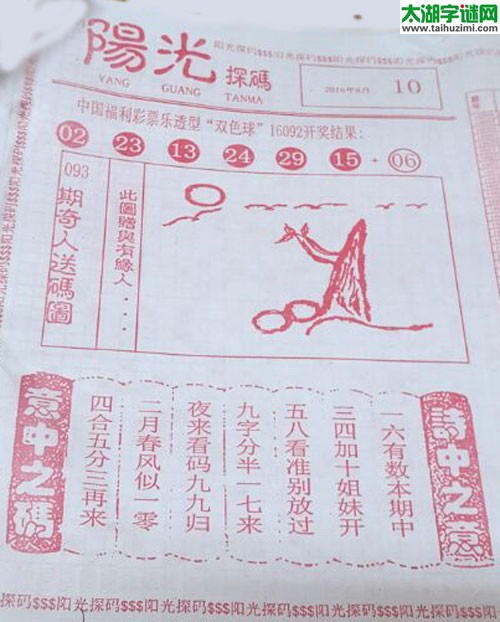 太湖字谜网
www.taihuzimi.com
阳光探码$$$阳光探码$$$阳光探码$$$阳光探码$$$
陽光探碼
YANG GUANG TANMA
2016年8月 10
中国福利彩票乐透型“双色球”16092开奖结果:
02 23 13 24 29 15 + 06
093
期奇人送碼圖
此圖贈與有緣人...
詩中之意
一六有数本期中
三四加十姐妹开
五八看准别放过
九字分半一七来
夜来看码九九归
二月春风似一零
四合五分三再来
意中之碼
探码$$$阳光探码$$$阳光探码$$$阳光探码$$$阳光探码$$$